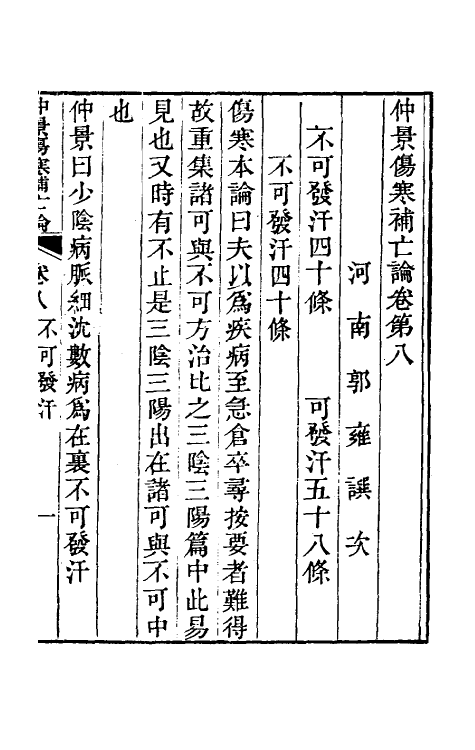 仲景傷寒補亡論卷第八
河南郭雍譔次
不可發汗四十條　可發汗五十八條
不可發汗四十條
傷寒本論曰夫以爲疾病至急倉卒尋按要者難得
故重集諸可與不可方治比之三陰三陽篇中此易
見也又時有不止是三陰三陽出在諸可與不可中
也
仲景曰少陰病脈細沈數病爲在裏不可發汗
仲景傷寒補亡論　卷八　不可發汗　一